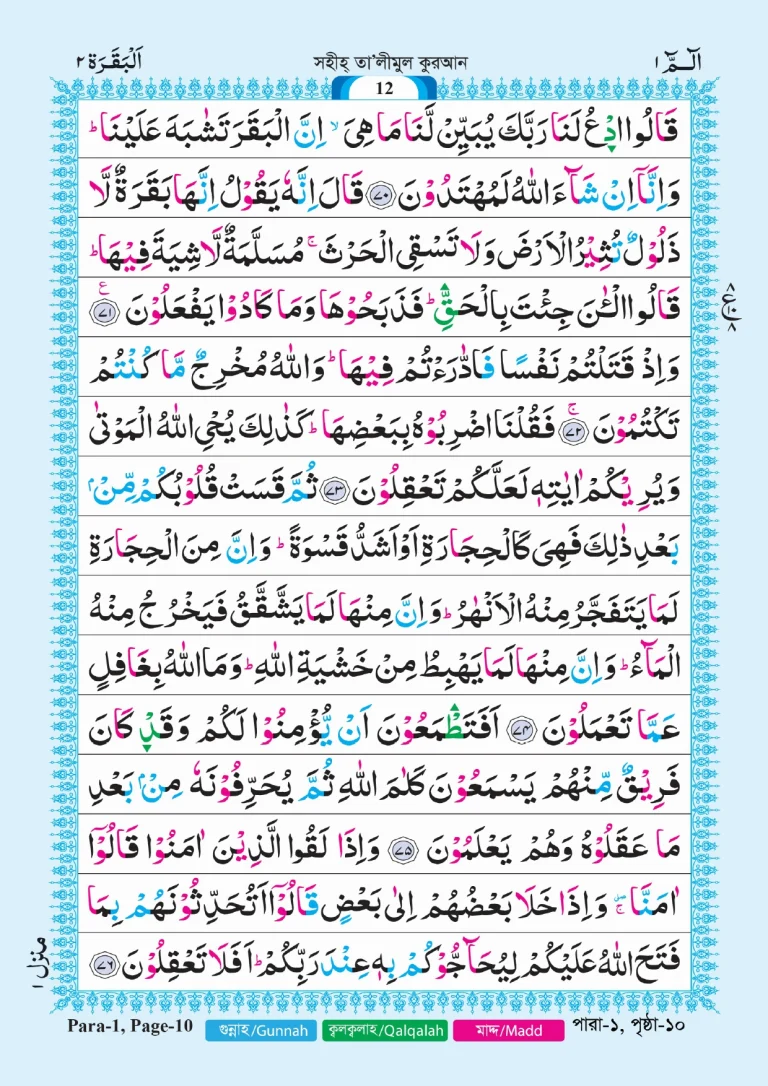 اَلْبَقَرَة ٢ সহীহ্ তা'লীমুল কুরআন الٓـمّٓ ١
12
قَالُوا ادْعُ لَنَا رَبَّكَ يُبَيِّنْ لَّنَا مَا هِىَ ۙ اِنَّ الْبَقَرَ تَشٰبَهَ عَلَيْنَا ؕ
وَاِنَّاۤ اِنْ شَآءَ اللّٰهُ لَمُهْتَدُوْنَ ﴿٧٠﴾ قَالَ اِنَّهٗ يَقُوْلُ اِنَّهَا بَقَرَةٌ لَّا
ذَلُوْلٌ تُثِيْرُ الْاَرْضَ وَلَا تَسْقِى الْحَرْثَ ۚ مُسَلَّمَةٌ لَّاشِيَةَ فِيْهَا ؕ
قَالُوا الْـٰٔنَ جِئْتَ بِالْحَقِّ ؕ فَذَبَحُوْهَا وَمَا كَادُوْا يَفْعَلُوْنَ ﴿٧١﴾ ع
وَاِذْ قَتَلْتُمْ نَفْسًا فَادّٰرَءْتُمْ فِيْهَا ؕ وَاللّٰهُ مُخْرِجٌ مَّا كُنْتُمْ
تَكْتُمُوْنَ ﴿٧٢﴾ ۚ فَقُلْنَا اضْرِبُوْهُ بِبَعْضِهَا ؕ كَذٰلِكَ يُحْىِ اللّٰهُ الْمَوْتٰى
وَيُرِيْكُمْ اٰيٰتِهٖ لَعَلَّكُمْ تَعْقِلُوْنَ ﴿٧٣﴾ ثُمَّ قَسَتْ قُلُوْبُكُمْ مِّنْۢ
بَعْدِ ذٰلِكَ فَهِىَ كَالْحِجَارَةِ اَوْ اَشَدُّ قَسْوَةً ؕ وَاِنَّ مِنَ الْحِجَارَةِ
لَمَا يَتَفَجَّرُ مِنْهُ الْاَنْهٰرُ ؕ وَاِنَّ مِنْهَا لَمَا يَشَّقَّقُ فَيَخْرُجُ مِنْهُ
الْمَآءُ ؕ وَاِنَّ مِنْهَا لَمَا يَهْبِطُ مِنْ خَشْيَةِ اللّٰهِ ؕ وَمَا اللّٰهُ بِغَافِلٍ
عَمَّا تَعْمَلُوْنَ ﴿٧٤﴾ اَفَتَطْمَعُوْنَ اَنْ يُّؤْمِنُوْا لَكُمْ وَقَدْ كَانَ
فَرِيْقٌ مِّنْهُمْ يَسْمَعُوْنَ كَلٰمَ اللّٰهِ ثُمَّ يُحَرِّفُوْنَهٗ مِنْۢ بَعْدِ
مَا عَقَلُوْهُ وَهُمْ يَعْلَمُوْنَ ﴿٧٥﴾ وَاِذَا لَقُوا الَّذِيْنَ اٰمَنُوْا قَالُوْۤا
اٰمَنَّا ۚ وَاِذَا خَلَا بَعْضُهُمْ اِلٰى بَعْضٍ قَالُوْۤا اَتُحَدِّثُوْنَهُمْ بِمَا
فَتَحَ اللّٰهُ عَلَيْكُمْ لِيُحَآجُّوْكُمْ بِهٖ عِنْدَ رَبِّكُمْ ؕ اَفَلَا تَعْقِلُوْنَ ﴿٧٦﴾
منزل ١
Para-1, Page-10 গুন্নাহ/Gunnah ক্বলক্বলাহ/Qalqalah মাদ্দ/Madd পারা-১, পৃষ্ঠা-১০